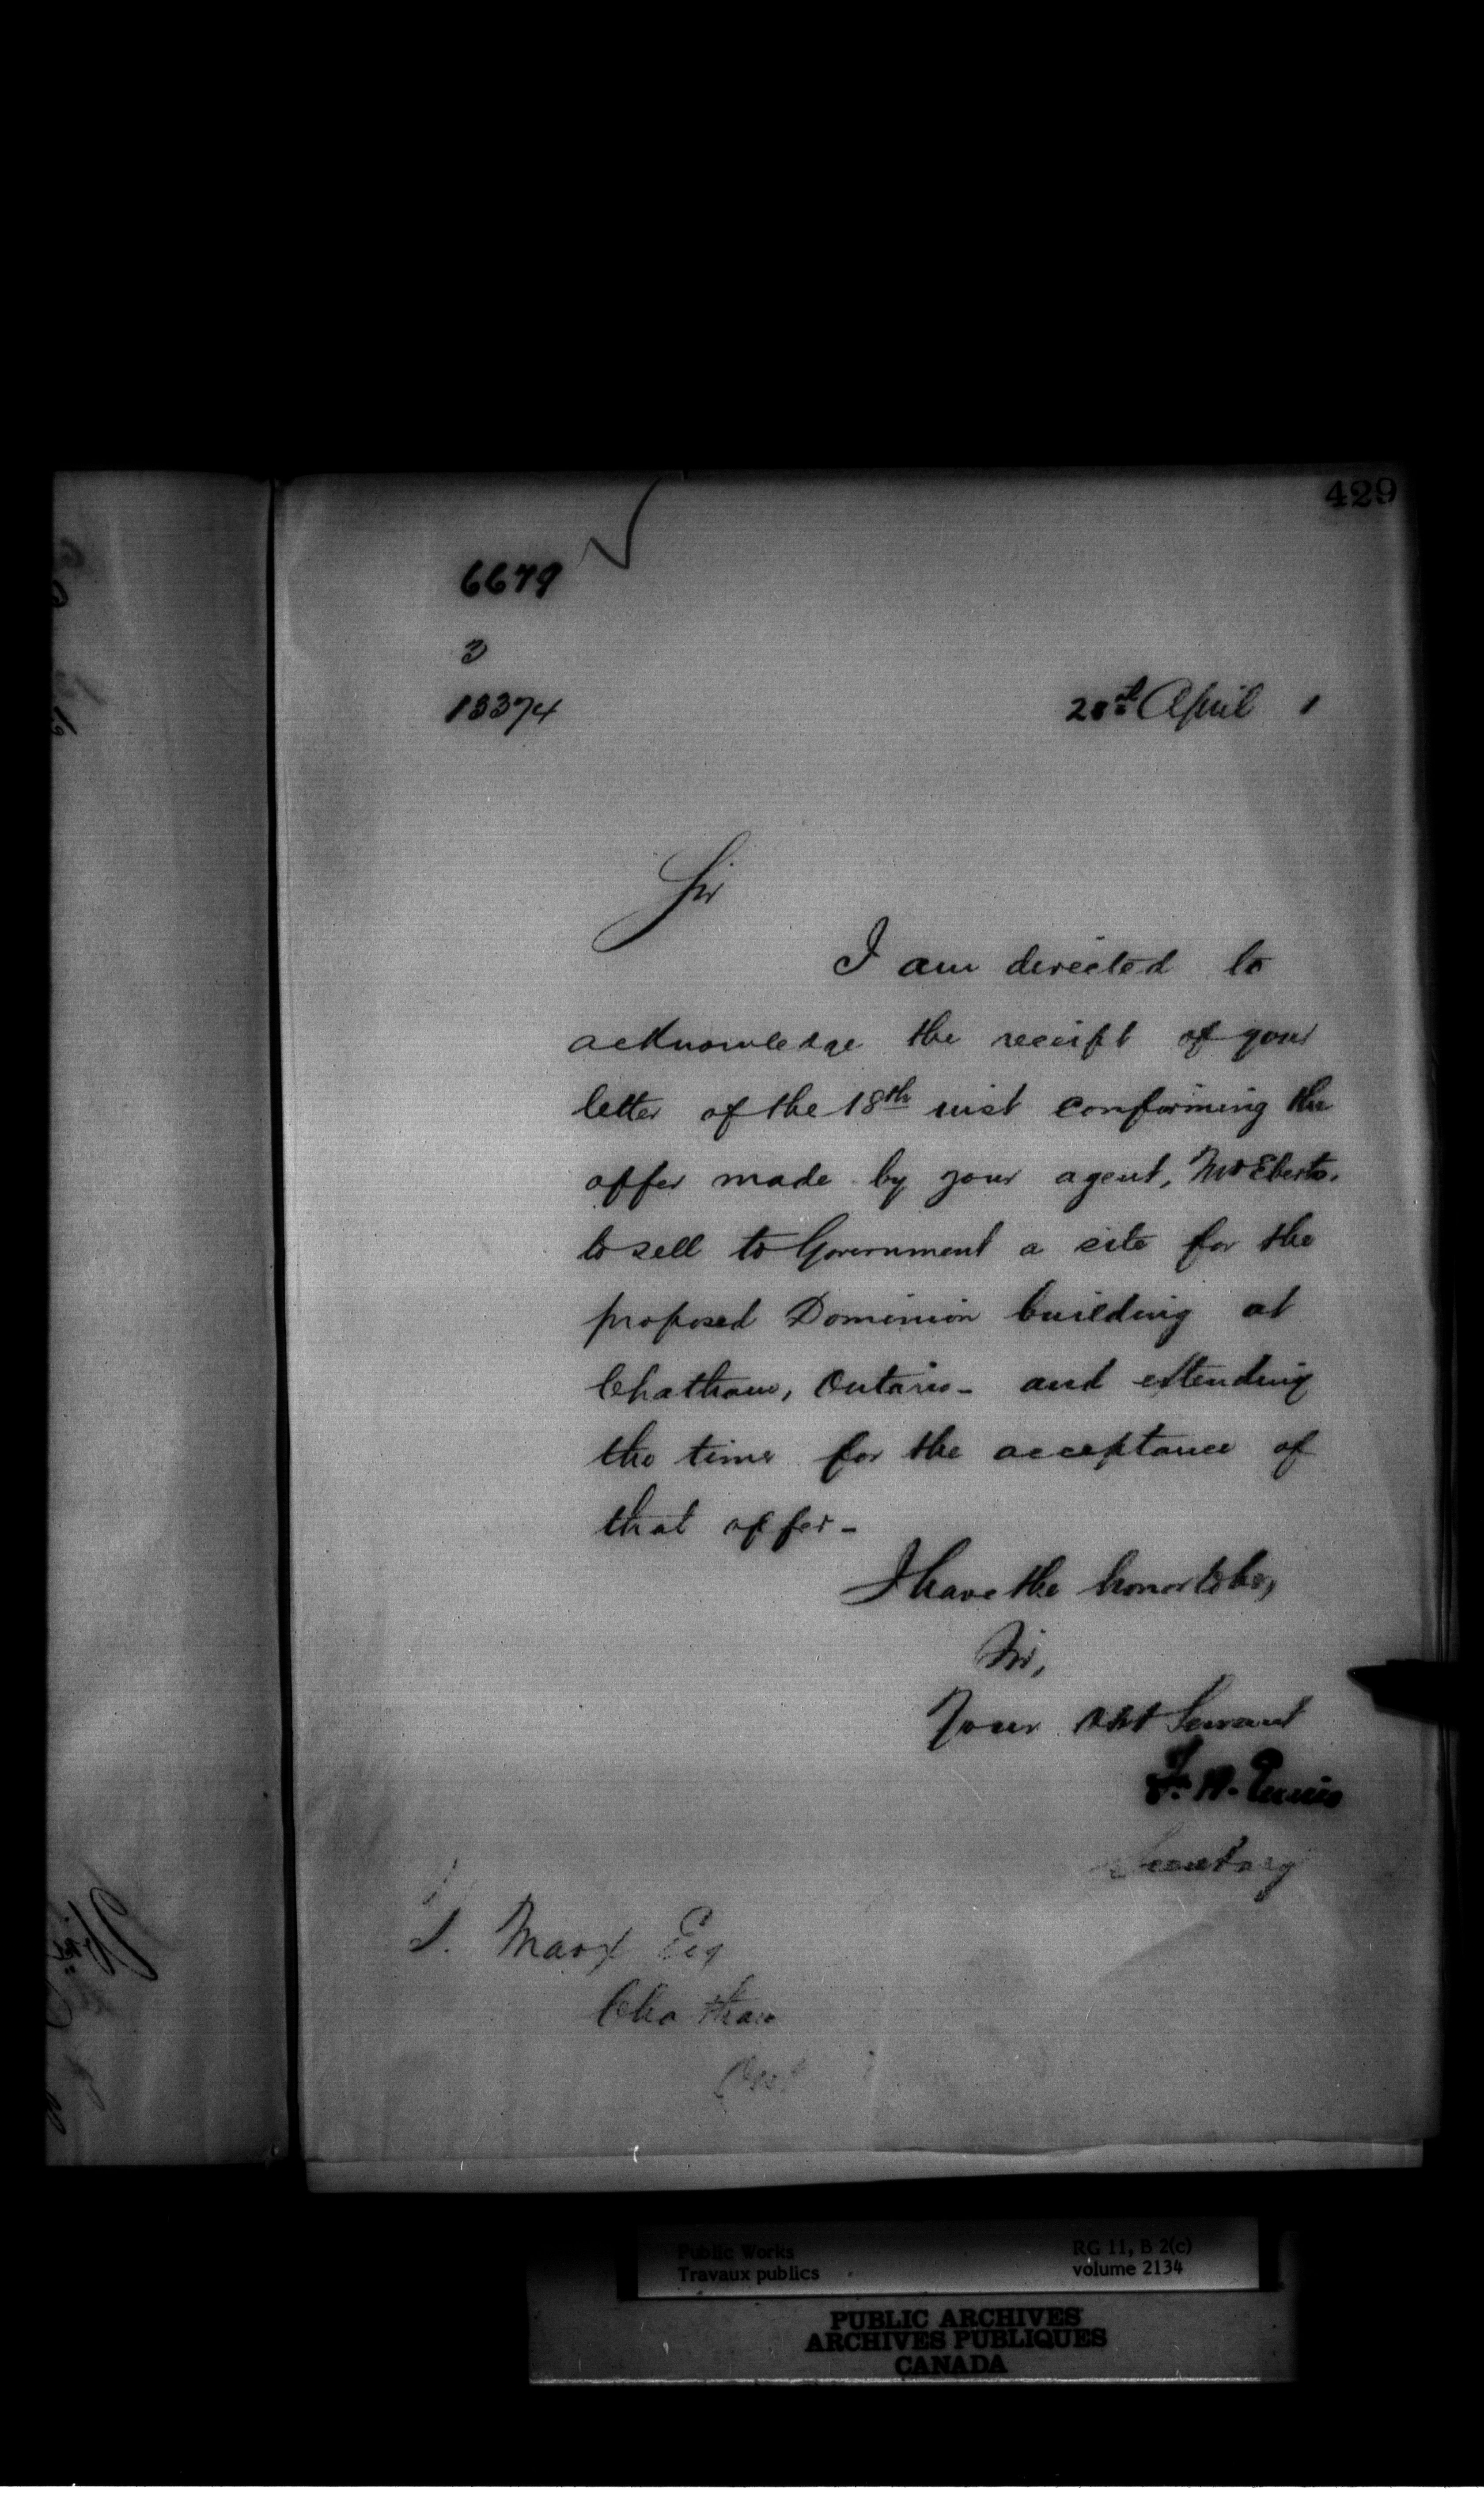 429
6679
3
13374
20th April 1
Sir
I am directed to
acknowledge the receipt of your
letter of the 18th inst conforming the
offer made by your agent, Mr Eberts.
to sell to Government a site for the
proposed Dominion building at
Chatham, Ontario - and extending
the time for the acceptance of
that offer -
I have the honor to be,
Sir,
Your Obt Servant
F. H. Ennis
Secretary
S. Marx Esq
Chatham
Ont
Public Works
Travaux publics
RG 11, B 2(c)
volume 2134
PUBLIC ARCHIVES
ARCHIVES PUBLIQUES
CANADA